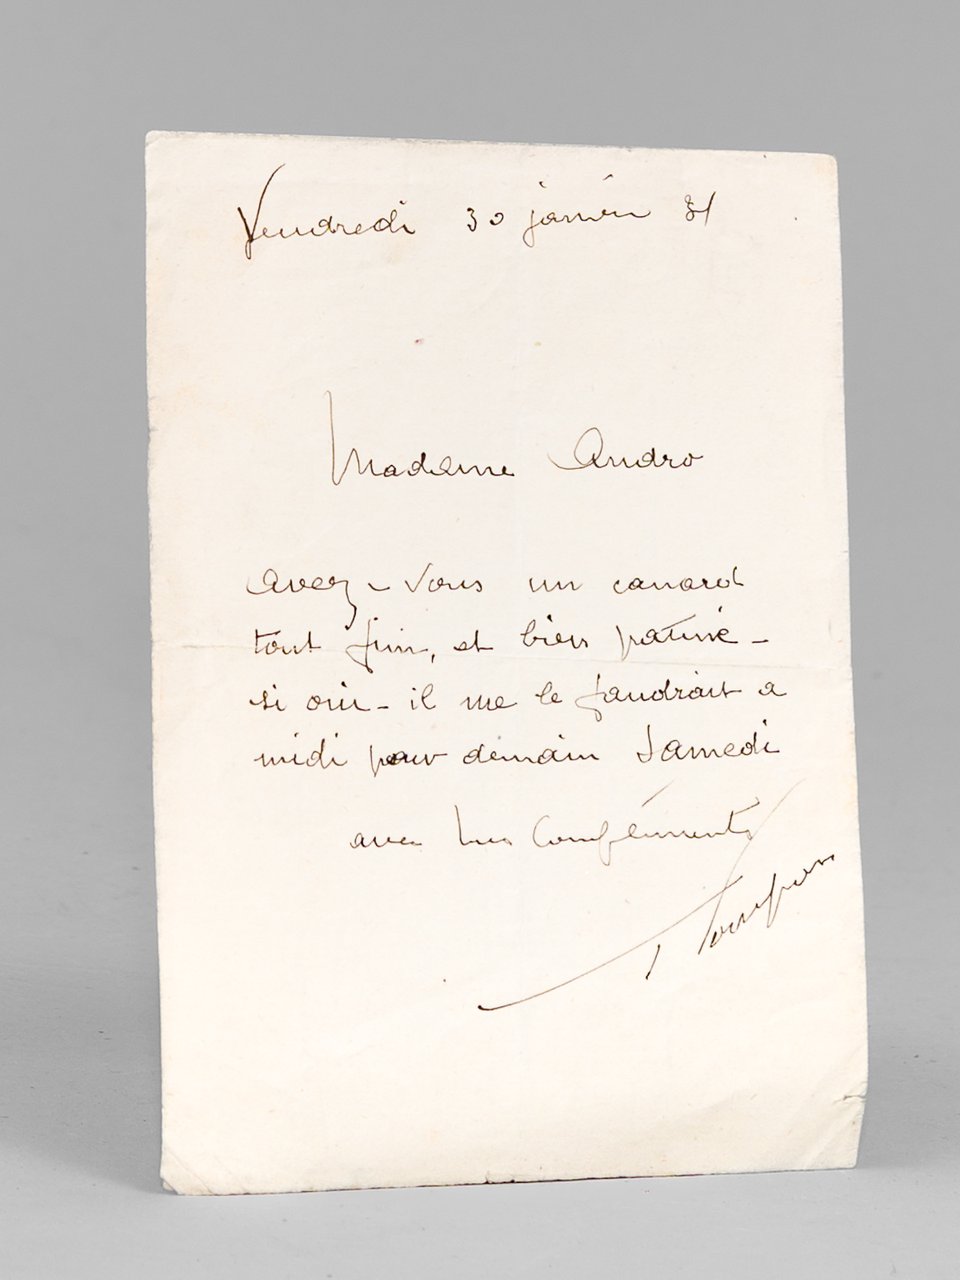 Vendredi 30 janvier 31
Madame Andro
avez-vous un canard
tout fin, et bien patiné -
si oui - il me le faudrait a
midi pour demain Samedi
avec mes Compléments